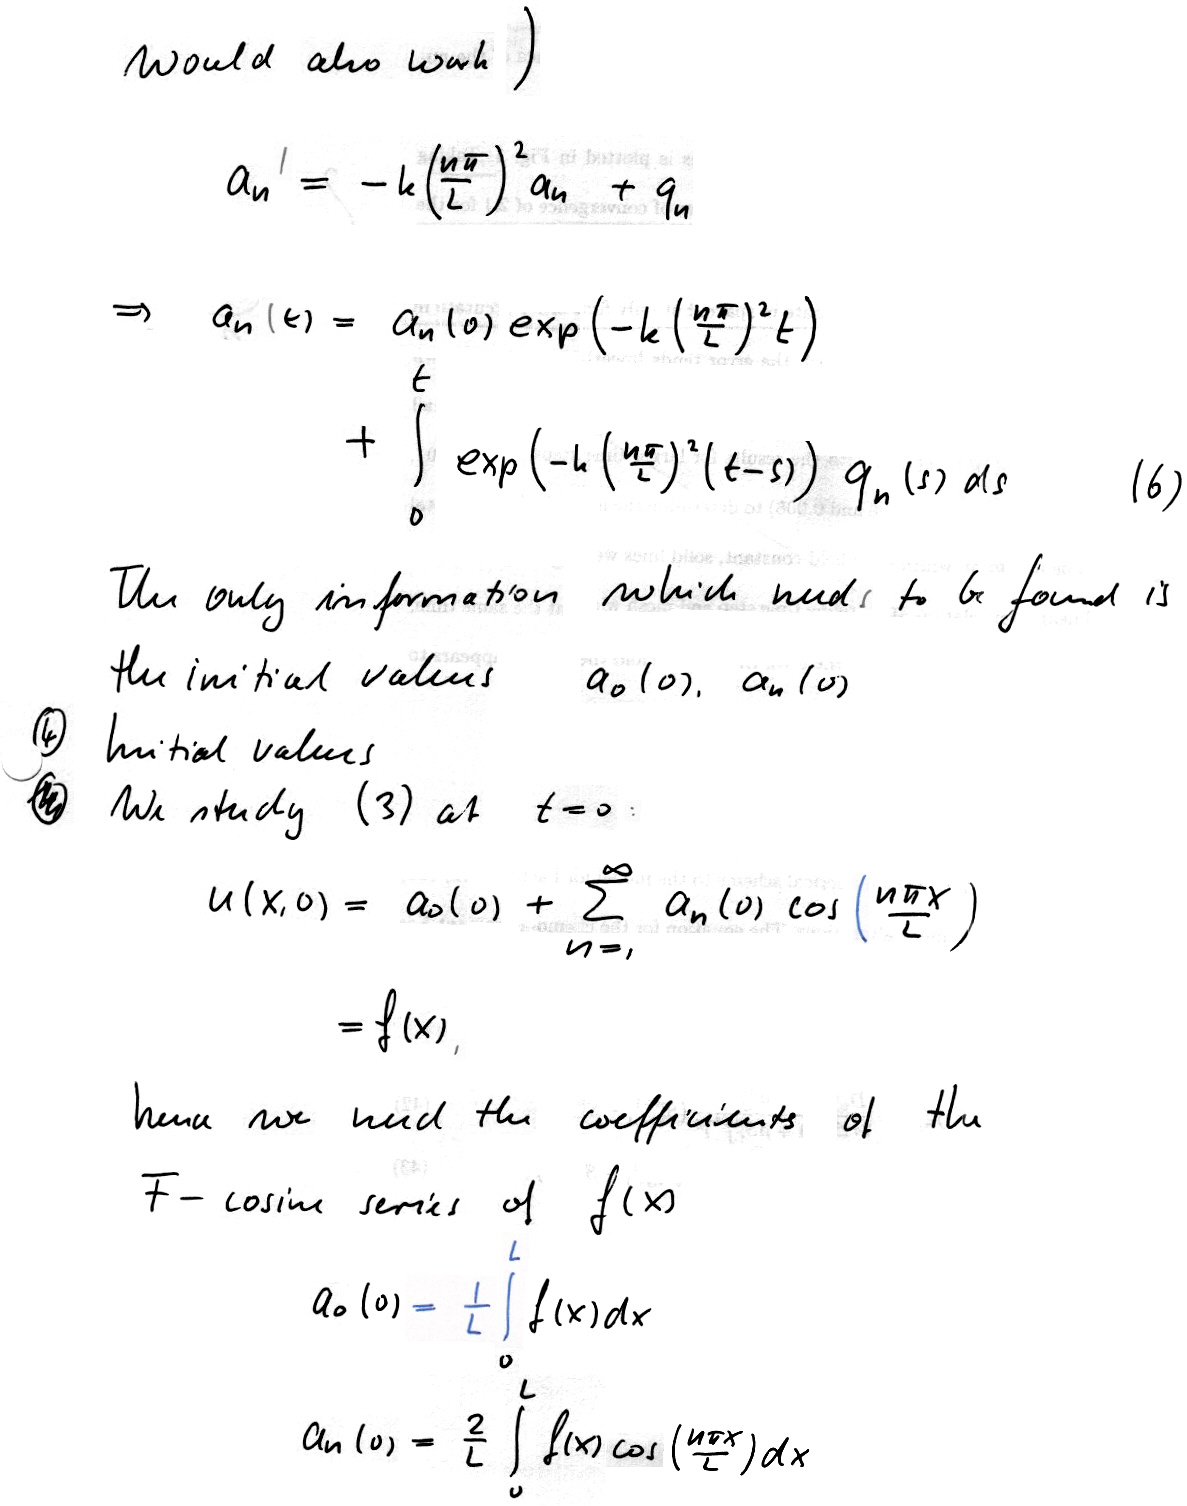 would also work)
aₙ' = -k(nπ/L)² aₙ + qₙ
⇒ aₙ(t) = aₙ(0) exp(-k(nπ/L)² t)
+ ∫₀ᵗ exp(-k(nπ/L)²(t-s)) qₙ(s) ds (6)
The only information which needs to be found is
the initial values a₀(0), aₙ(0)
④ Initial values
We study (3) at t=0:
u(x,0) = a₀(0) + ∑ₙ₌₁^∞ aₙ(0) cos(nπx/L)
= f(x),
hence we need the coefficients of the
F-cosine series of f(x)
a₀(0) = 1/L ∫₀ᴸ f(x)dx
aₙ(0) = 2/L ∫₀ᴸ f(x) cos(nπx/L)dx